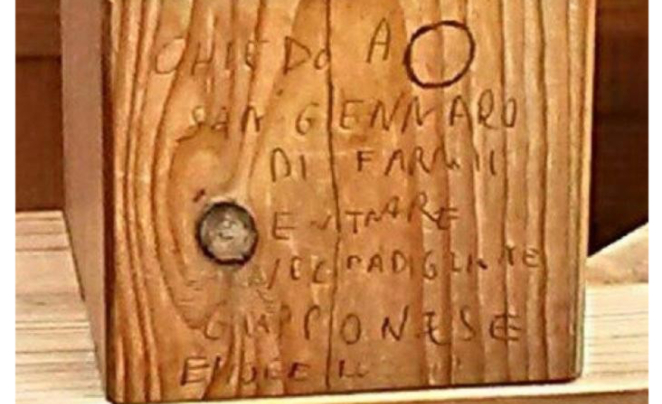 CHIEDO A
SAN GENNARO
DI FARMI
ENTRARE
NEL PADIGLIONE
GIAPPONESE